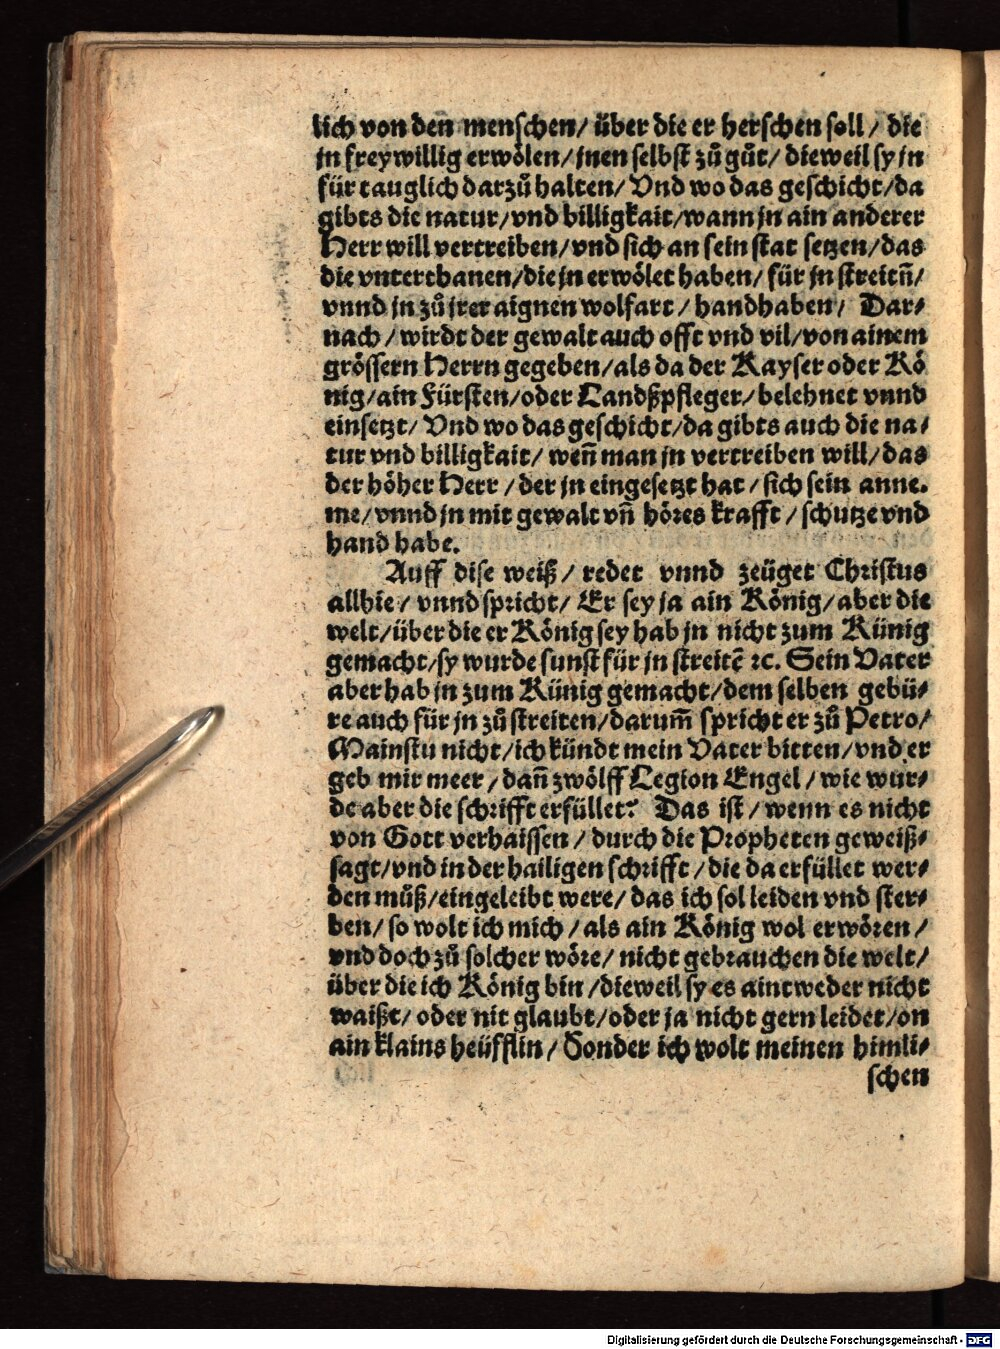 lich von den menschen/ über die er herschen soll/ die
jn freywillig erwölen/ jnen selbst zů gůt/ dieweil sy jn
für tauglich darzů halten/ Vnd wo das geschicht/ da
gibts die natur/ vnd billigkait/ wann jn ain anderer
Herr will vertreiben/ vnd sich an sein stat setzen/ das
die vnterthanen/ die jn erwölet haben/ für jn streitñ/
vnnd jn zů jrer aignen wolfart/ handhaben/ Dar⸗
nach/ wirdt der gewalt auch offt vnd vil/ von ainem
grössern Herrn gegeben/ als da der Kayser oder Kö
nig/ ain Fürsten/ oder Landßpfleger/ belehnet vnnd
einsetzt/ Vnd wo das geschicht/ da gibts auch die na⸗
tur vnd billigkait/ weñ man jn vertreiben will/ das
der höher Herr/ der jn eingesetzt hat/ sich sein anne.
me/ vnnd jn mit gewalt vñ höres krafft/ schutze vnd
hand habe.
Auff dise weiß/ redet vnnd zeüget Christus
allhie/ vnnd spricht/ Er sey ja ain König/ aber die
welt/ über die er König sey hab jn nicht zum Künig
gemacht/ sy wurde sunst für jn streitē ꝛc. Sein Vater
aber hab jn zum Künig gemacht/ dem selben gebü⸗
re auch für jn zů streiten/ darum̃ spricht er zů Petro/
Mainstu nicht/ ich kündt mein Vater bitten/ vnd er
geb mir meer/ dañ zwölff Legion Engel/ wie wur⸗
de aber die schrifft erfüllet? Das ist/ wenn es nicht
von Gott verhaissen/ durch die Propheten geweiß⸗
sagt/ vnd in der hailigen schrifft/ die da erfüllet wer⸗
den můß/ eingeleibt were/ das ich sol leiden vnd ster⸗
ben/ so wolt ich mich/ als ain König wol erwören/
vnd doch zů solcher wöre/ nicht gebrauchen die welt/
über die ich König bin/ dieweil sy es aintweder nicht
waißt/ oder nit glaubt/ oder ja nicht gern leidet/ on
ain klains heüfflin/ Sonder ich wolt meinen himli⸗
schen
Digitalisierung gefördert durch die Deutsche Forschungsgemeinschaft - DFG